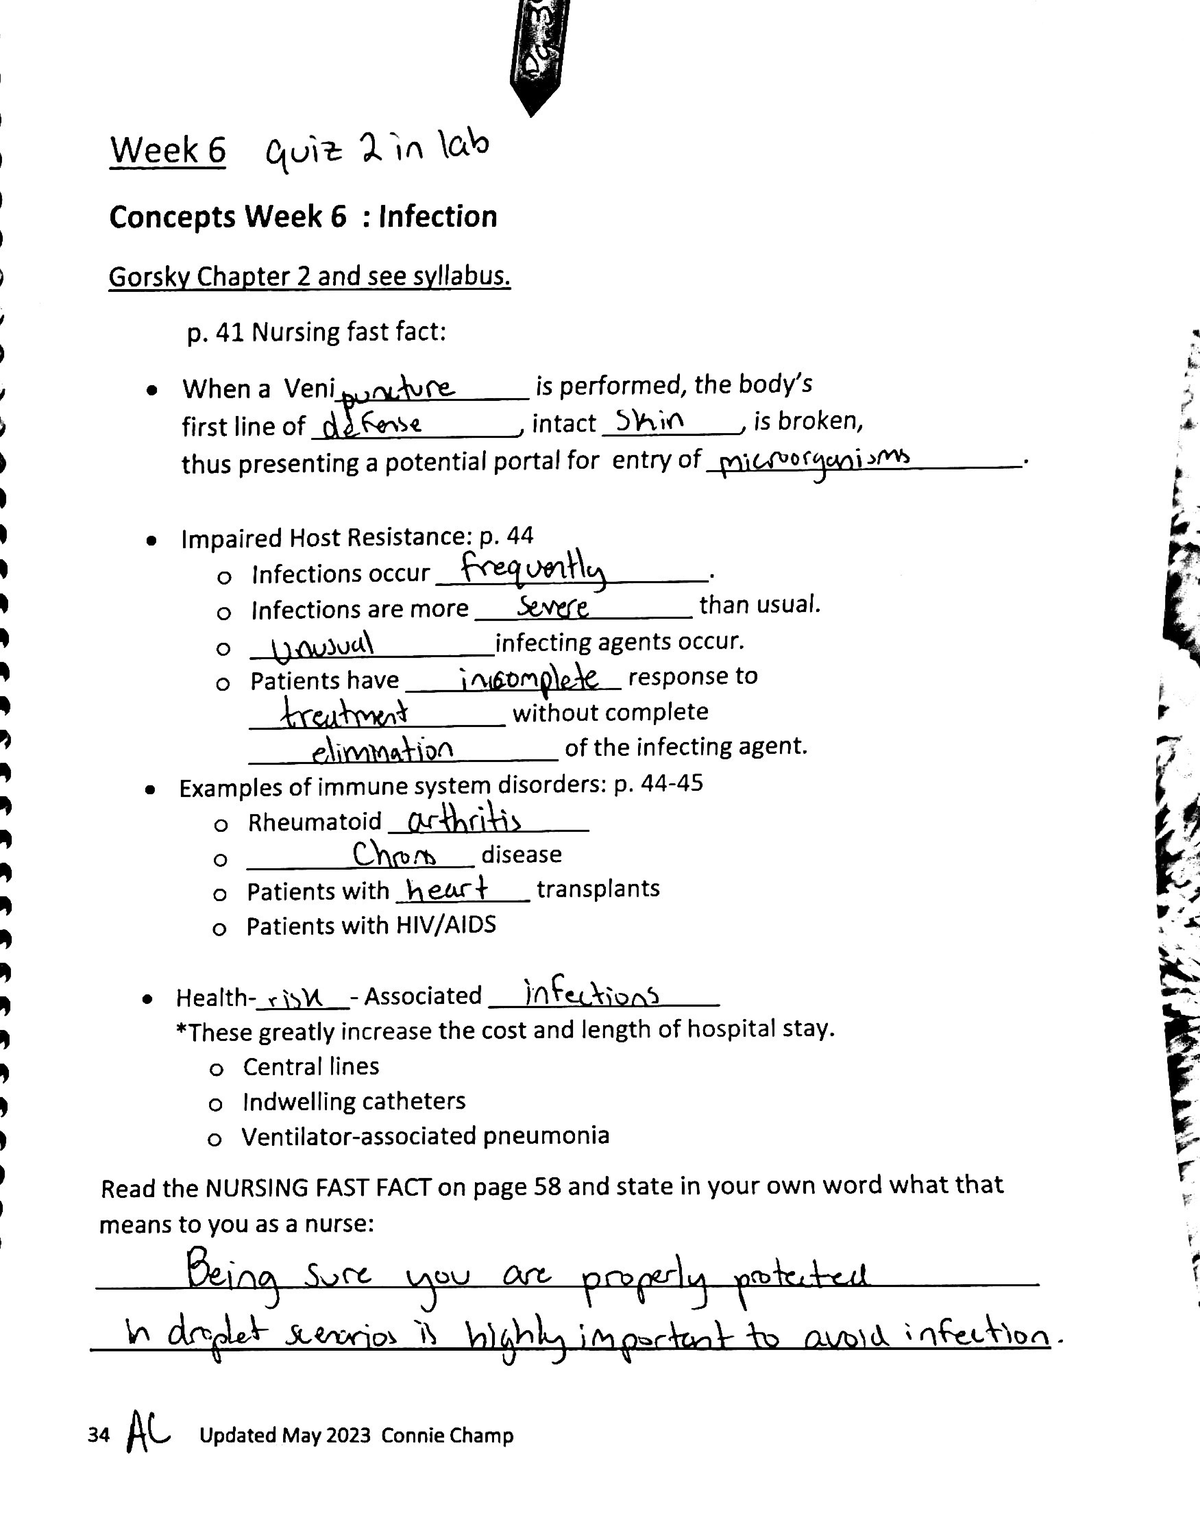 Week 6 quiz 2 in lab
Concepts Week 6 : Infection
Gorsky Chapter 2 and see syllabus.
p. 41 Nursing fast fact:
• When a Veni puncture is performed, the body's
first line of defense, intact Skin, is broken,
thus presenting a potential portal for entry of microorganisms.
• Impaired Host Resistance: p. 44
o Infections occur frequently.
o Infections are more severe than usual.
o Unusual infecting agents occur.
o Patients have incomplete response to
treatment without complete
elimination of the infecting agent.
• Examples of immune system disorders: p. 44-45
o Rheumatoid arthritis
o Chrons disease
o Patients with heart transplants
o Patients with HIV/AIDS
• Health-risk-Associated infections
*These greatly increase the cost and length of hospital stay.
o Central lines
o Indwelling catheters
o Ventilator-associated pneumonia
Read the NURSING FAST FACT on page 58 and state in your own word what that
means to you as a nurse:
Being sure you are properly protected
in droplet scenarios is highly important to avoid infection.
34 AC Updated May 2023 Connie Champ